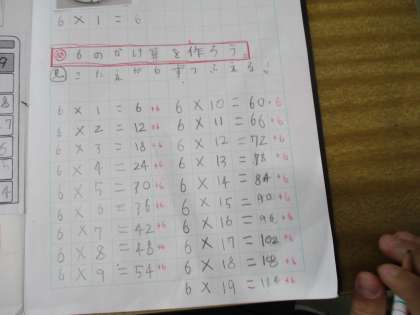 6 × 1 = 6
6のかけ算を作ろう。
こたえが6ずつふえる!
6 × 1 = 6 +6
6 × 2 = 12 +6
6 × 3 = 18 +6
6 × 4 = 24 +6
6 × 5 = 30 +6
6 × 6 = 36 +6
6 × 7 = 42 +6
6 × 8 = 48 +6
6 × 9 = 54 +6
6 × 10 = 60 +6
6 × 11 = 66 +6
6 × 12 = 72 +6
6 × 13 = 78 +6
6 × 14 = 84 +6
6 × 15 = 90 +6
6 × 16 = 96 +6
6 × 17 = 102 +6
6 × 18 = 108 +6
6 × 19 = 114 +6